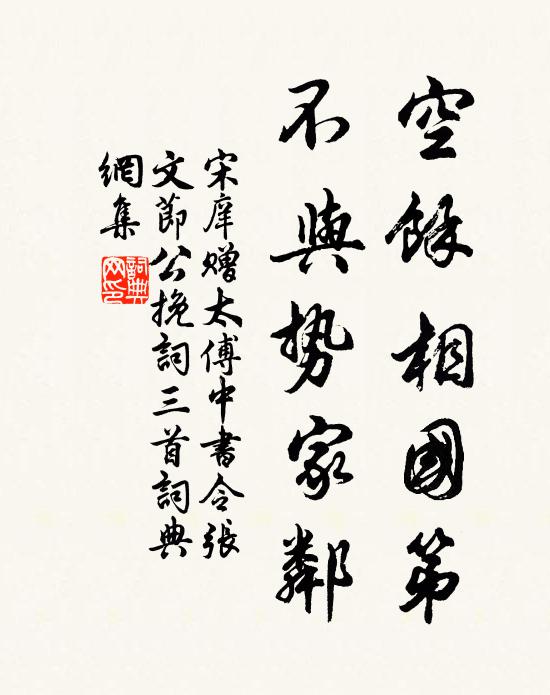 空餘相國第
不與势家鄰
宋庠赠太傅中書令張
文節公挽詞三首詞典
網集
詞典網印